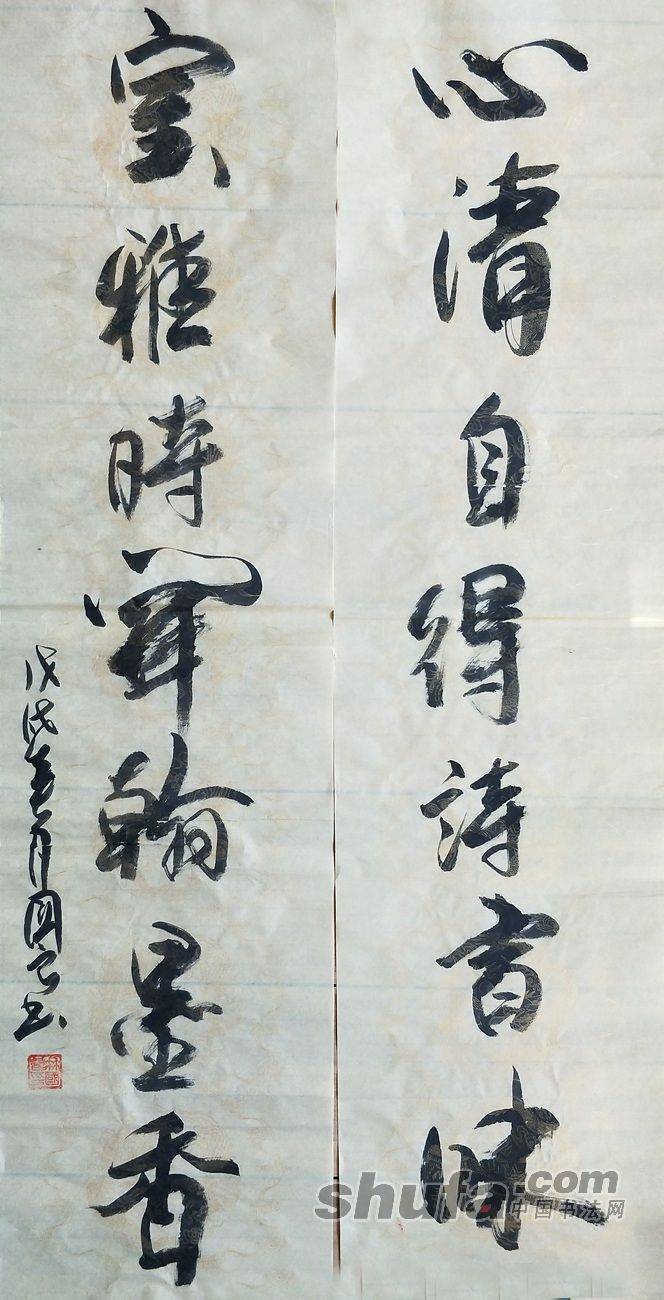 心清自得詩書味
室雅時聞翰墨香
戊戌春月国书
shufa.com
中国书法网